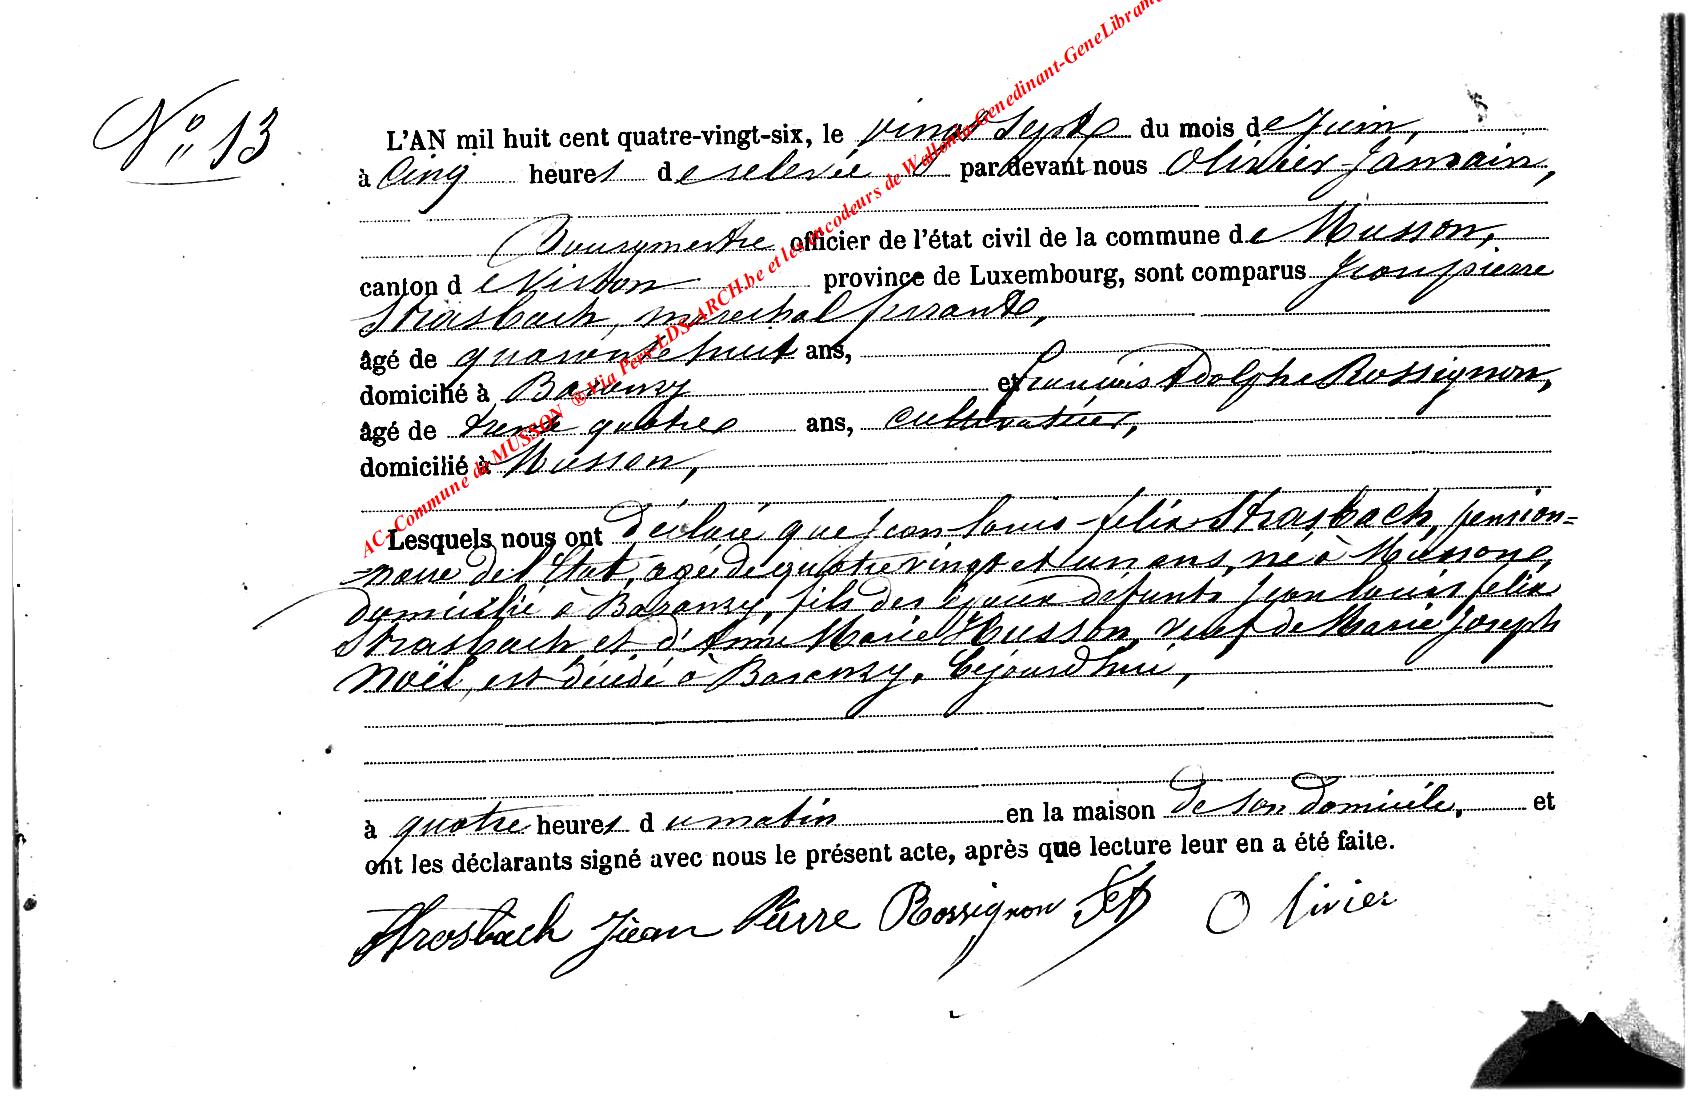 N° 13
L'AN mil huit cent quatre-vingt-six, le vingt Sept du mois de Juin,
à Cinq heures de relevée par devant nous Olivier Jamain,
Bourgmestre officier de l'état civil de la commune de Musson,
canton de Virton province de Luxembourg, sont comparus Jean pierre
Strasbach, maréchal ferrant,
âgé de quarante huit ans,
domicilié à Baranzy et francois Adolphe Rossignon,
âgé de trente quatre ans, cultivateur,
domicilié à Musson,
Lesquels nous ont déclaré que Jean louis felix Strasbach, pension=
=naire de l'Etat, agé de quatre vingt et un ans, né à Musson,
domicilié à Baranzy, fils des époux défunts Jean louis felix
Strasbach et d'Anne Marie Husson, veuf de Marie Joseph
Noël, est décédé à Baranzy, Cejourd'hui,
à quatre heures du matin en la maison de son domicile, et
ont les déclarants signé avec nous le présent acte, après que lecture leur en a été faite.
Strosbach Jean Pierre Rossignon Olivier
AC-Commune de MUSSON ® Via Pers-LDS-ARCH.be et les encodeurs de Wallonia-Genedinant-GeneLibrami